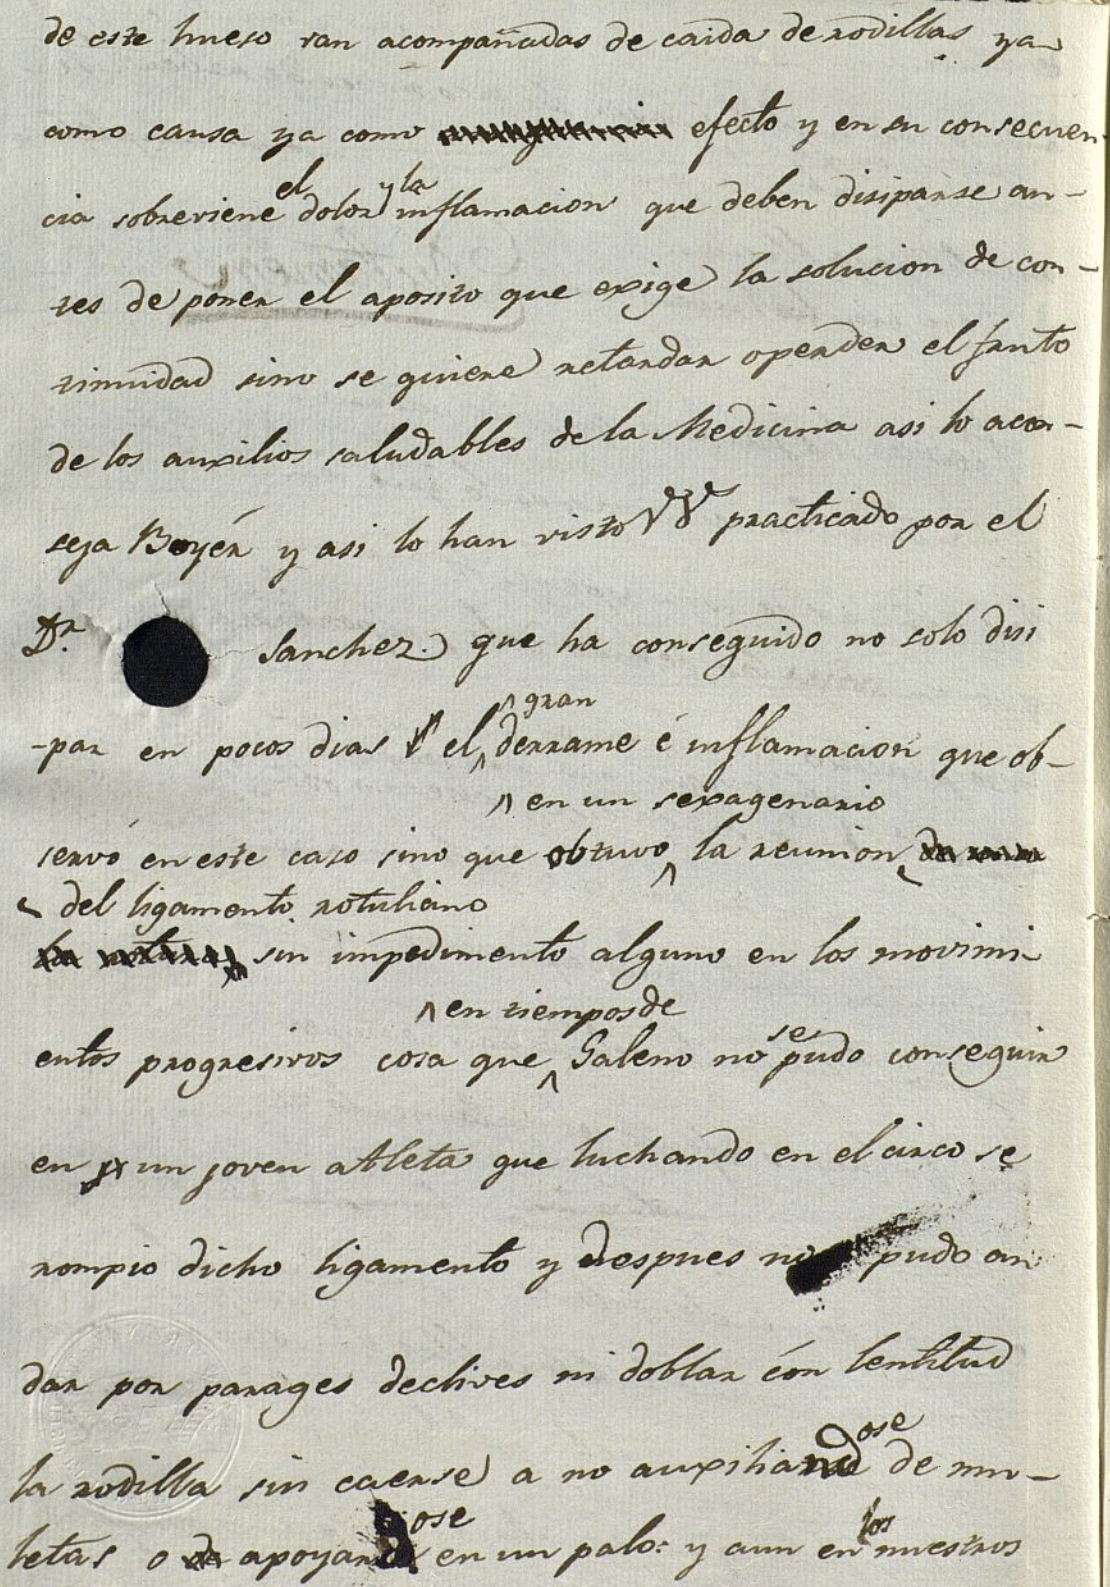 de este hueso van acompañadas de caida de rodillas ya
como causa ya como efecto y en su consecuen-
el y la
cia sobreviene dolor inflamacion que deben disiparse an-
tes de poner el aposito que exige la solucion de con-
tinuidad sino se quiere retardar o perder el fruto
de los auxilios saludables de la Medicina asi lo acon-
seja Boyér y asi lo han visto VVes practicado por el
Dr. Sanchez. que ha conseguido no solo disi
gran
-par en pocos dias el derrame é inflamacion que ob-
en un sexagenario
servó en este caso sino que obtuvo la reunion
del ligamento rotuliano
sin impedimento alguno en los movimi-
en tiempos de
se
entos progresivos cosa que Galeno no pudo conseguir
en un joven atleta que luchando en el circo se
rompio dicho ligamento y despues no pudo an
dar por parages declives ni doblar con lentitud
ose
la rodilla sin caerse a no auxiliand de mu-
ose
los
letas o apoyand en un palo: y aun en nuestros